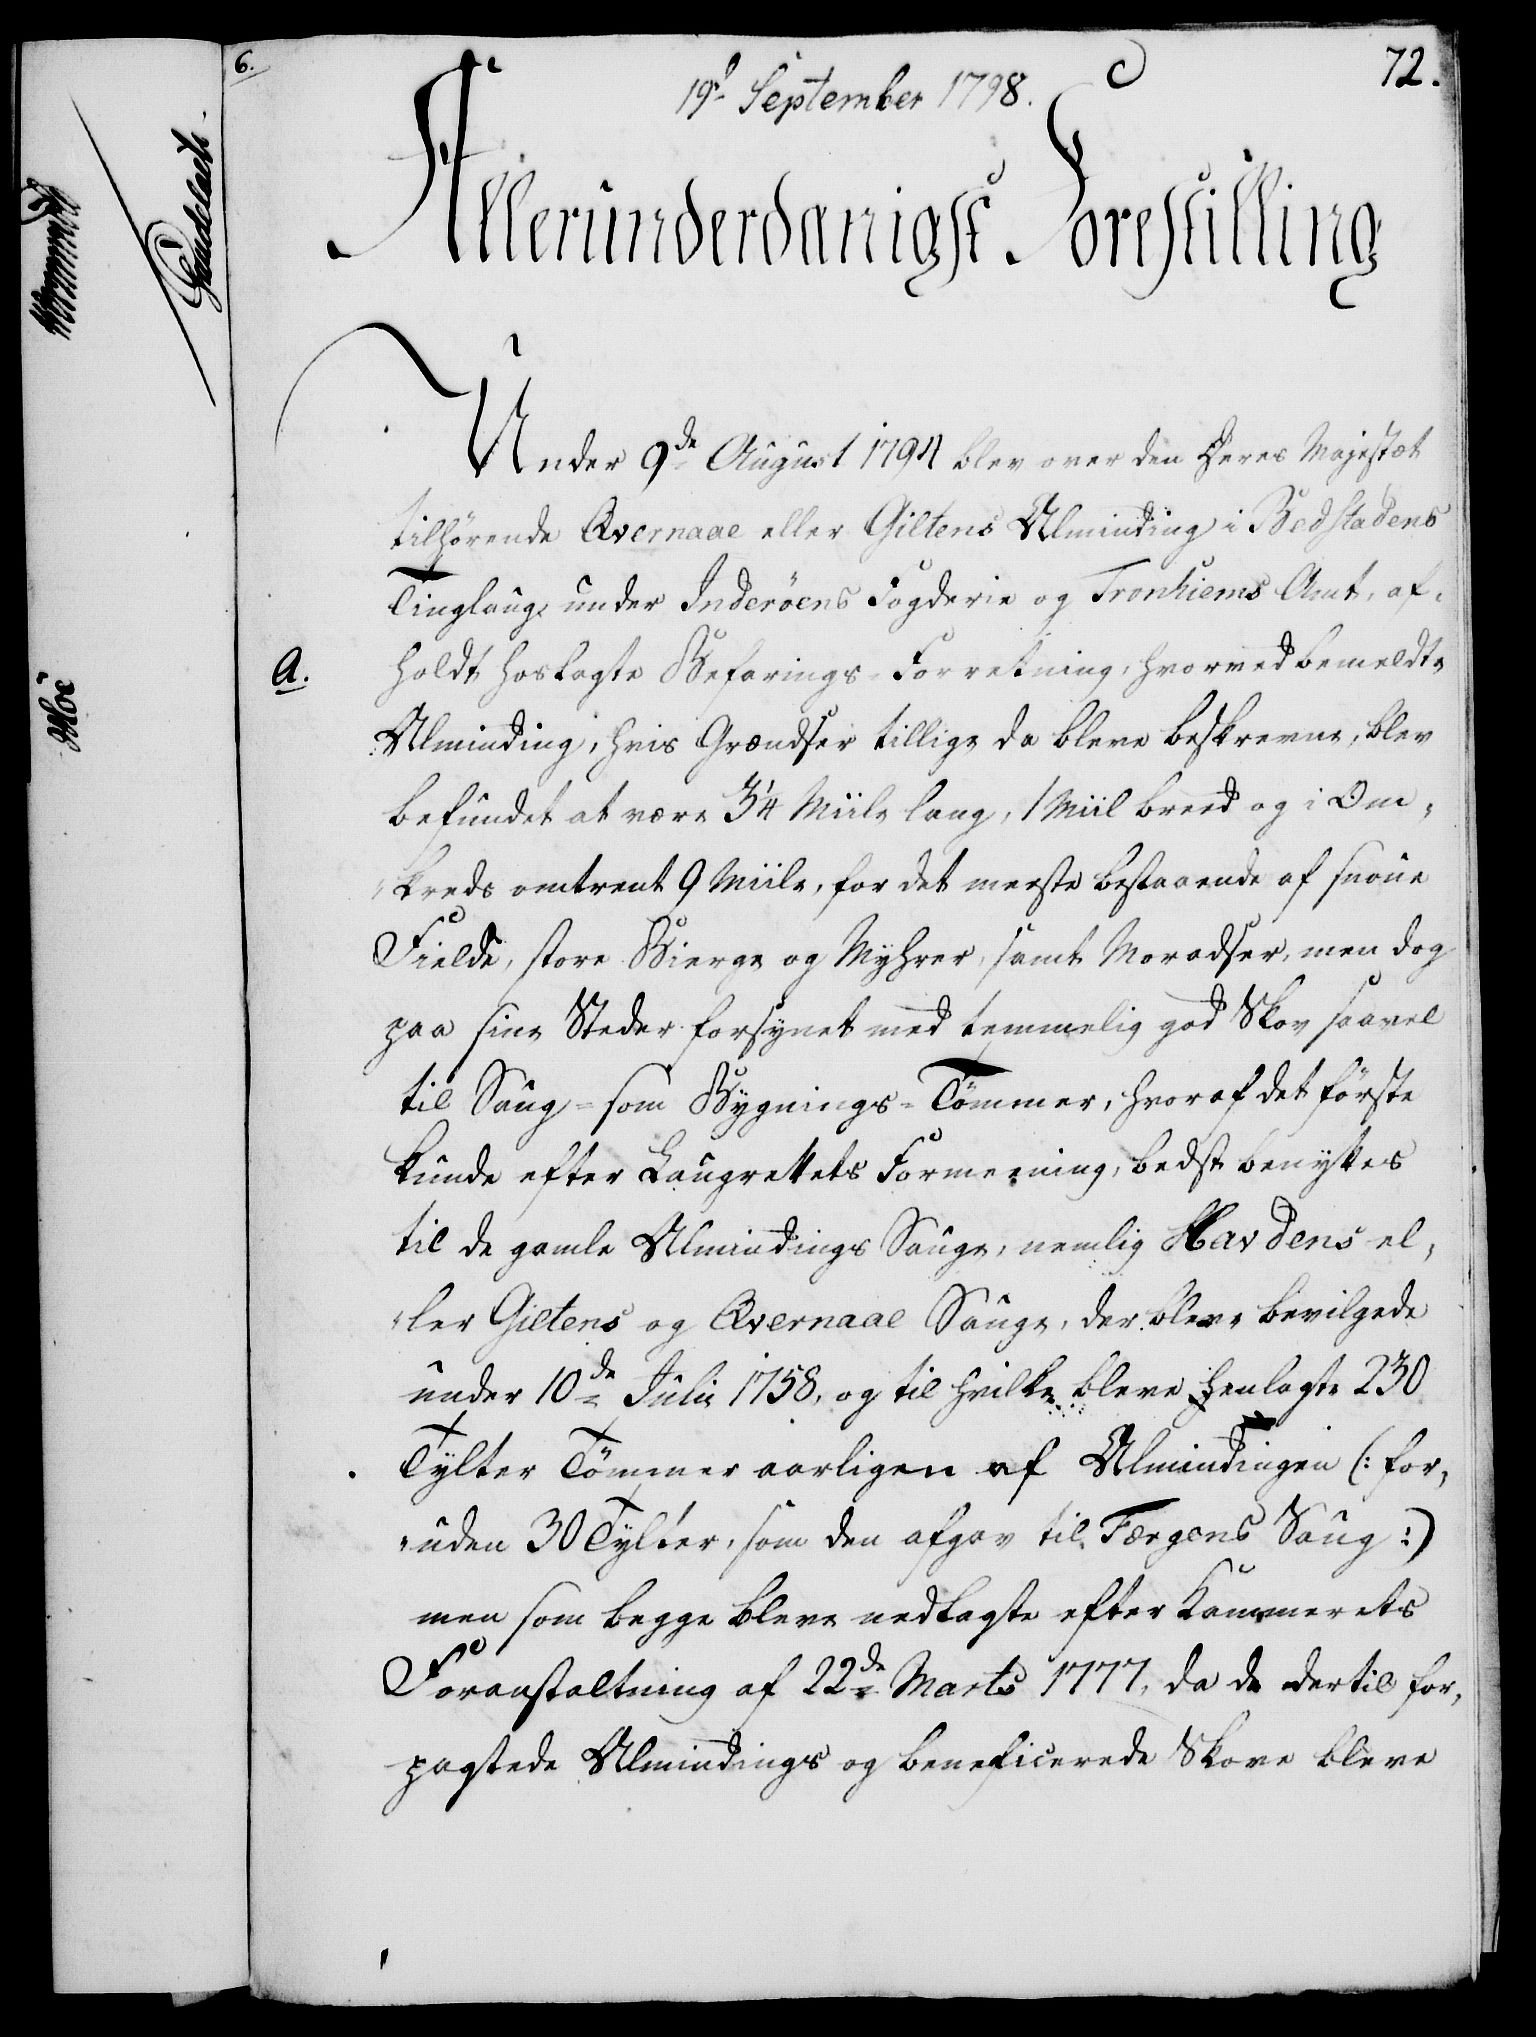 6.
72.
19d September 1798.
Allerunderdanigst Forestilling
Under 9de August 1794 blev over den Deres Majestæt
tilhörende Qvernaae eller Giltens Alminding i Bedstadens
Tinglaug under Inderöens Fogderie og Tronhiems Amt, af-
A.
holdt hoslagte Befarings-Forretning, hvorved bemeldte
Alminding, hvis Grændser tillige da bleve beskrevne, blev
befundet at være 3¼ Miile lang, 1 Miil breed og i Om-
kreds omtrent 9 Miile, for det meeste bestaaende af snöue
Fielde, store Bierge og Myhrer, samt Moradser, men dog
paa sine Steder forsynet med temmelig god Skov saavel
til Saug- som Bygnings-Tömmer, hvoraf det förste
kunde efter Laugrettets Formeening, bedst benyttes
til de gamle Almindings Sauge, nemlig Havdens el-
ler Giltens og Qvernaae Sauge, der bleve bevilgede
under 10de Julii 1758, og til hvilke bleve henlagte 230
Tylter Tömmer aarligen af Almindingen (: for-
uden 30 Tylter, som den afgav til Færgens Saug :)
men som begge bleve nedlagte efter Kammerets
Foranstaltning af 22de Marts 1777, da de dertil for-
pagtede Almindings og beneficerede Skove bleve
Moe